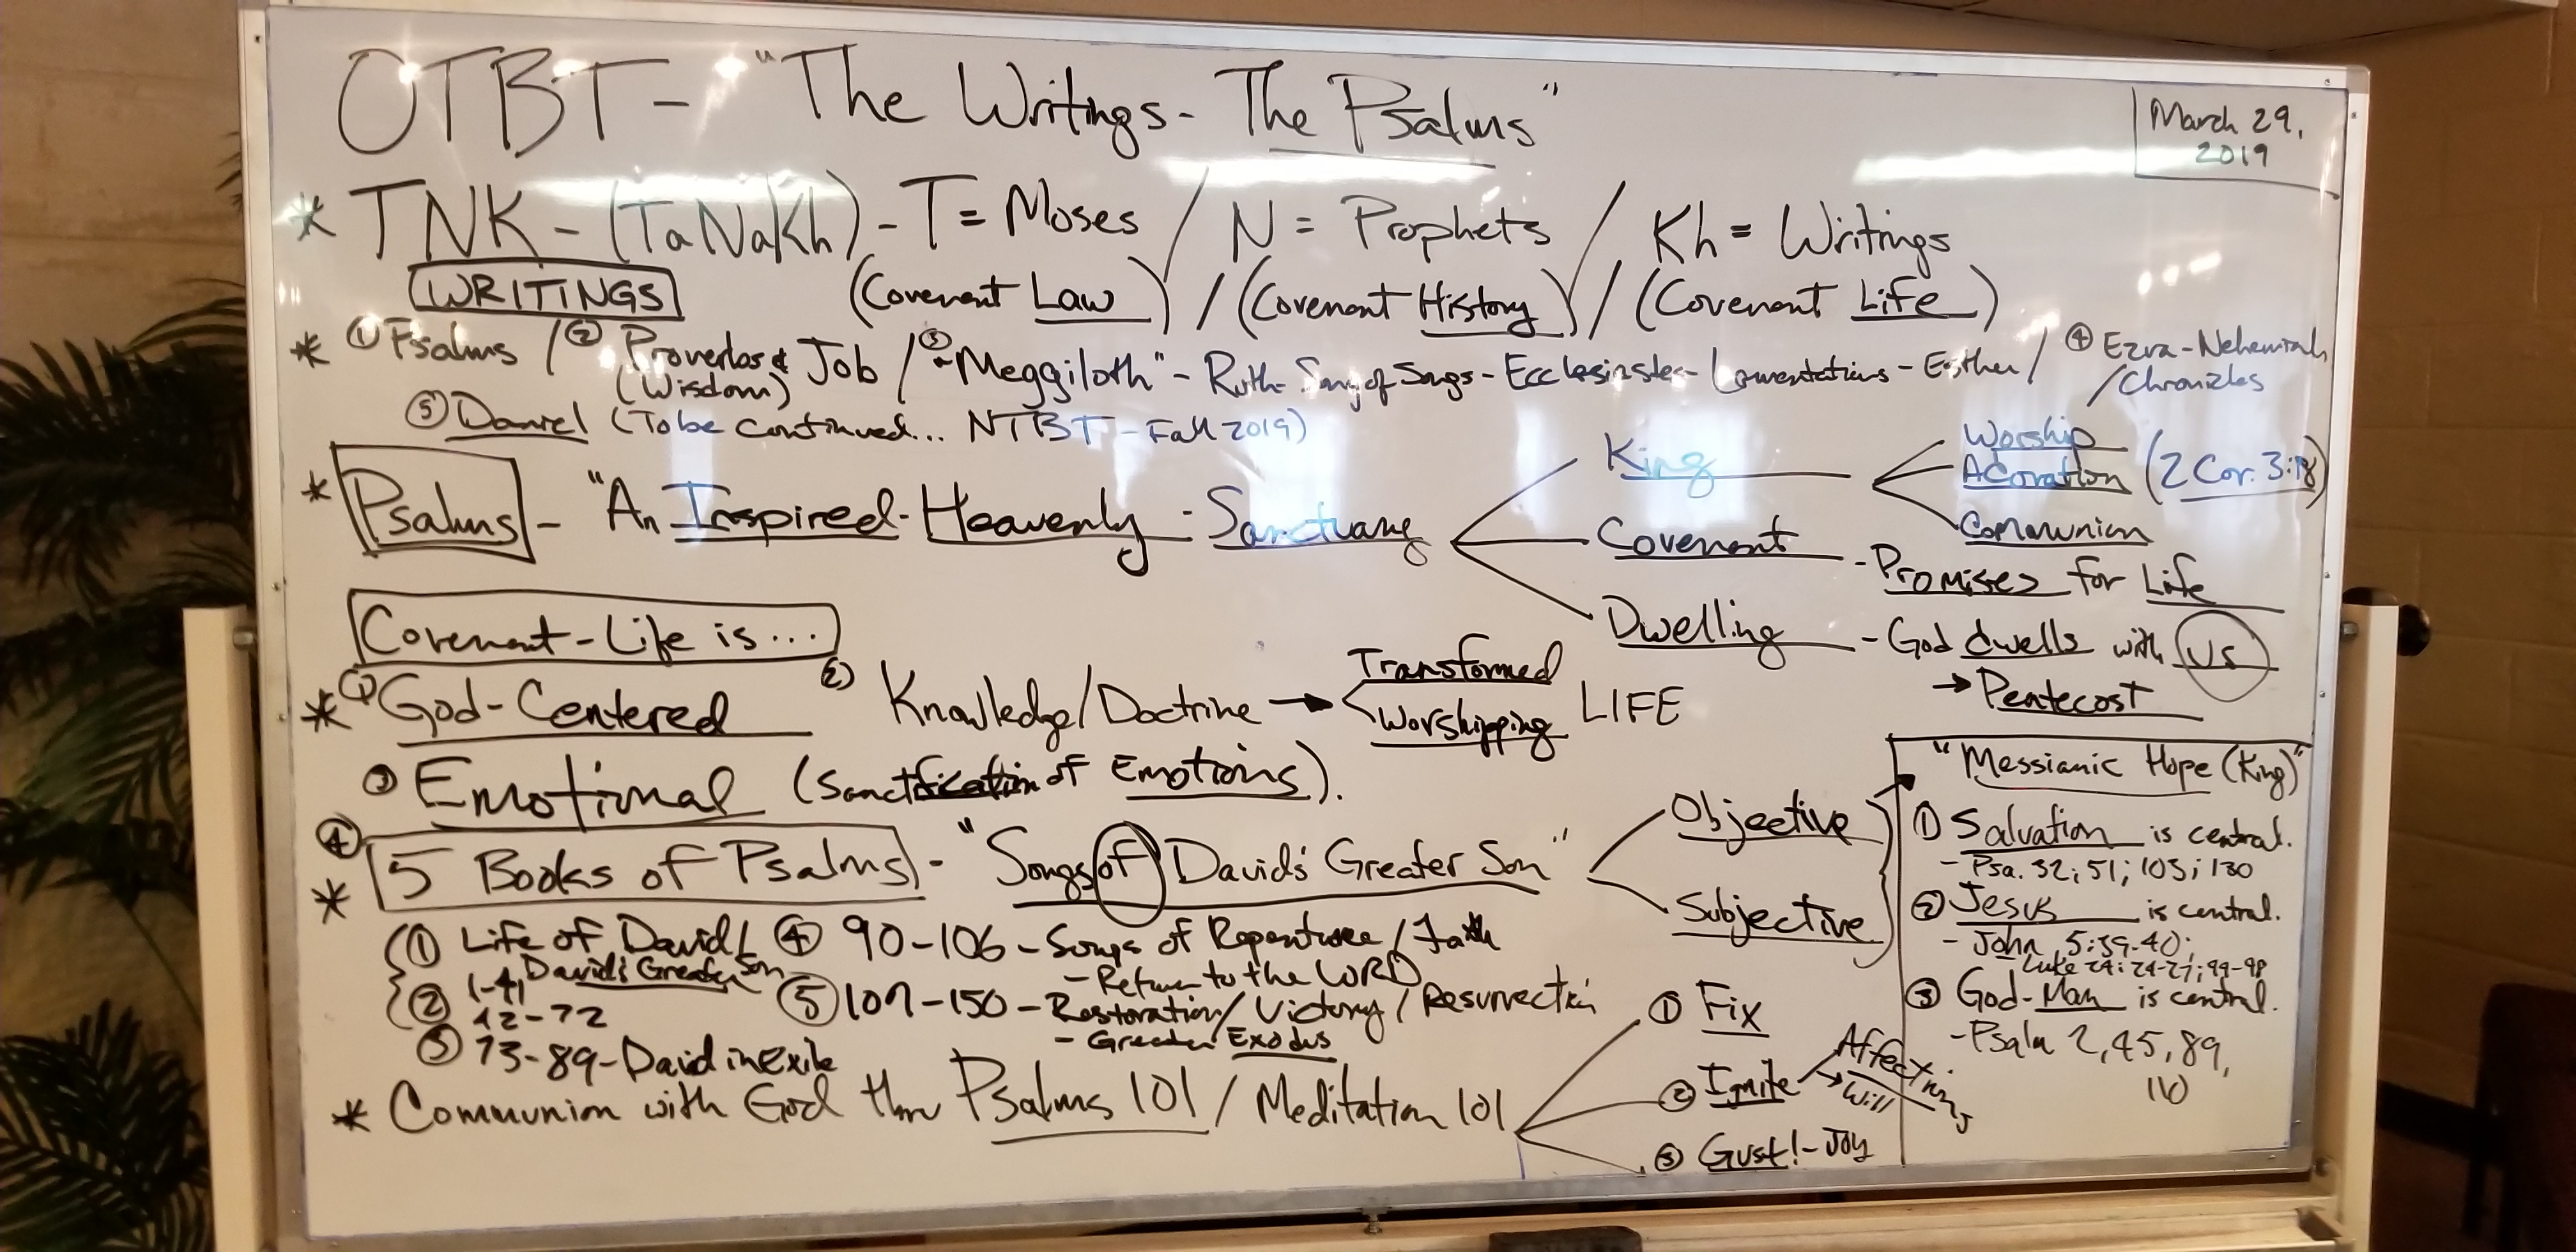 OTBT - "The Writings - The Psalms"
March 29,
2019
* TNK - (TaNaKh) - T = Moses / N = Prophets / Kh = Writings
WRITINGS (Covenant Law) / (Covenant History) / (Covenant Life)
* ① Psalms / ② Proverbs & Job / ③ "Meggiloth" - Ruth - Song of Songs - Ecclesiastes - Lamentations - Esther / ④ Ezra - Nehemiah
(Wisdom) / Chronicles
⑤ Daniel (To be continued... NTBT - Fall 2019)
* Psalms - "An Inspired - Heavenly - Sanctuary
King
Worship
Adoration (2 Cor. 3:18)
Communion
Covenant - Promises for Life
Dwelling - God dwells with us
→ Pentecost
Covenant - Life is...
* ① God-Centered ② Knowledge/Doctrine → Transformed
Worshipping LIFE
③ Emotional (Sanctification of Emotions).
④
* 5 Books of Psalms - "Songs of David's Greater Son"
Objective
Subjective
"Messianic Hope (King)"
① Salvation is central.
- Psa. 32; 51; 103; 130
② Jesus is central.
- John 5:39-40;
Luke 24:24-27; 44-48
③ God-Man is central.
- Psalm 2, 45, 89,
110
① Life of David/
1-41 David's Greater Son
② 42-72
③ 73-89 - David in Exile
④ 90-106 - Songs of Repentance/Faith
- Return to the LORD
⑤ 107-150 - Restoration/Victory/Resurrection
- Greater Exodus
* Communion with God thru Psalms 101 / Meditation 101
① Fix
② Ignite Affections
→ Will
③ Gust! - Joy